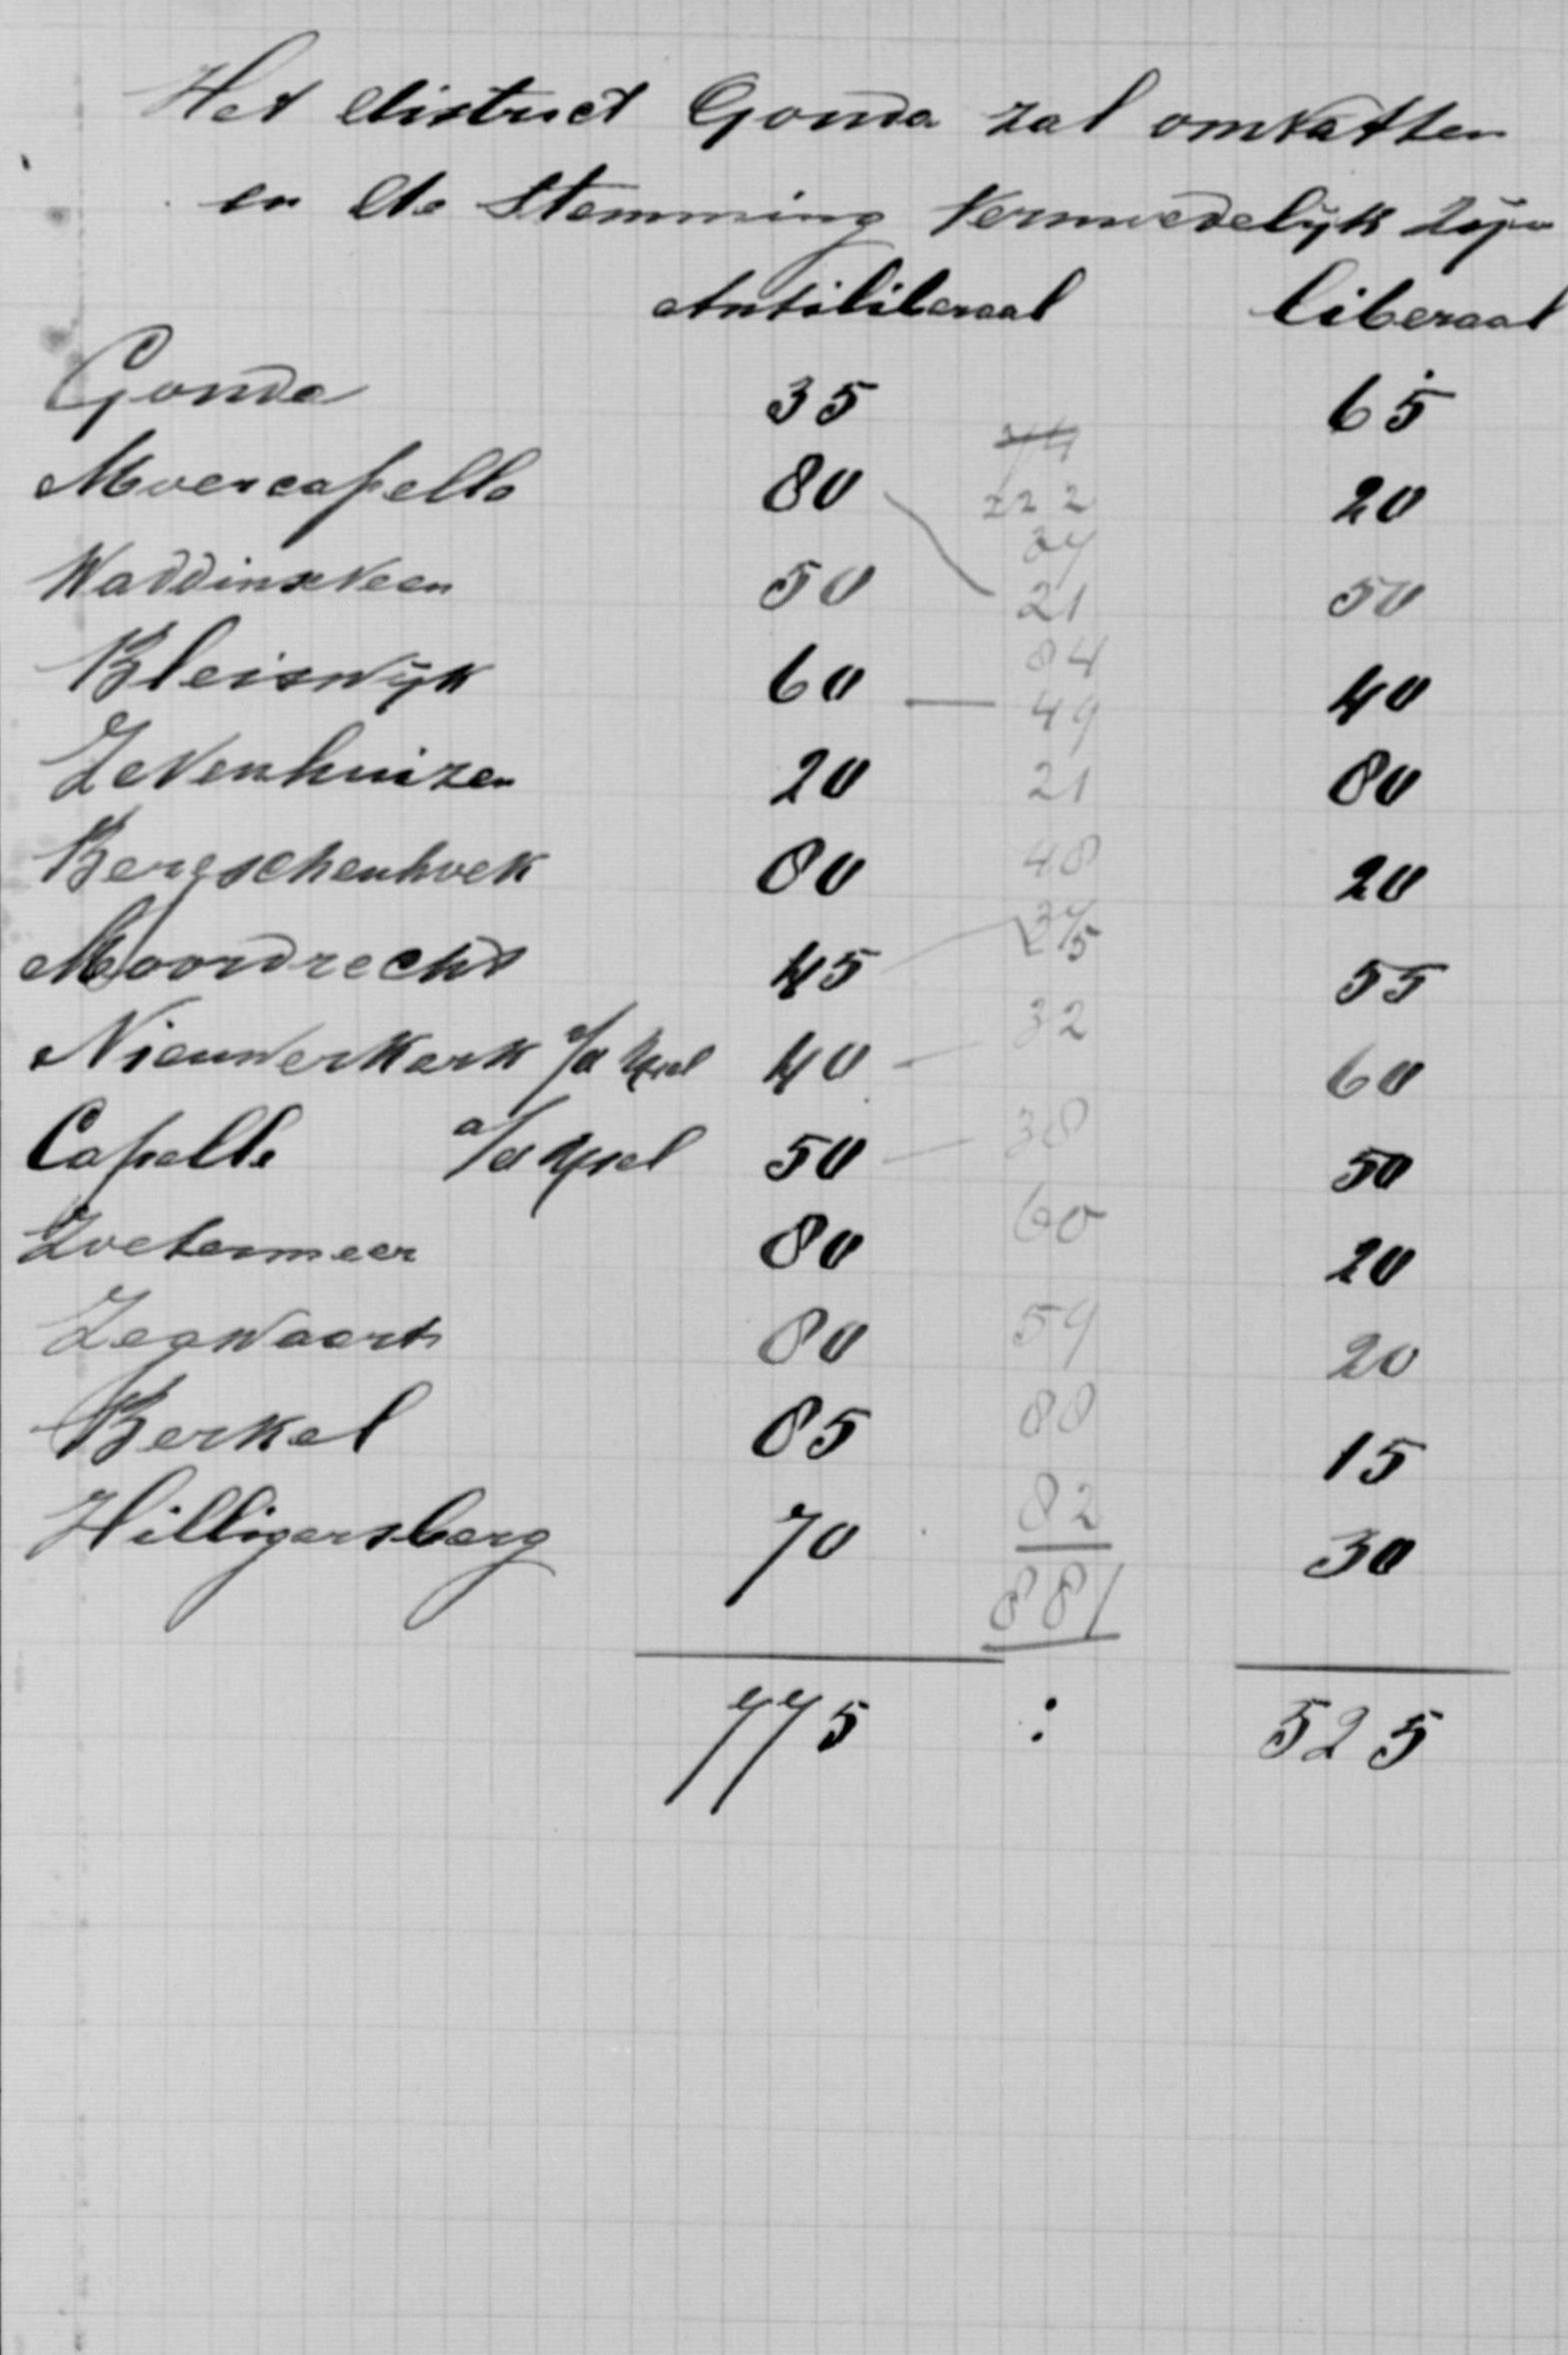 Het district Gouda zal omvatten
en de Stemming Vermoedelijk zijn
Antiliberaal liberaal
Gouda 35 65
Moercapelle 80 222 20
Waddinxveen 50 21 50
Bleiswijk 60 — 49 40
84
Zevenhuizen 20 21 80
Bergschenhoek 80 48 20
Moordrecht 45 55
Nieuwerkerk a/d Ysel 40 — 32 60
Capelle a/d Ysel 50 — 38 50
Zoetermeer 80 60 20
Zegwaart 80 59 20
Berkel 85 80 15
Hilligersberg 70 82 30
881
775 : 525